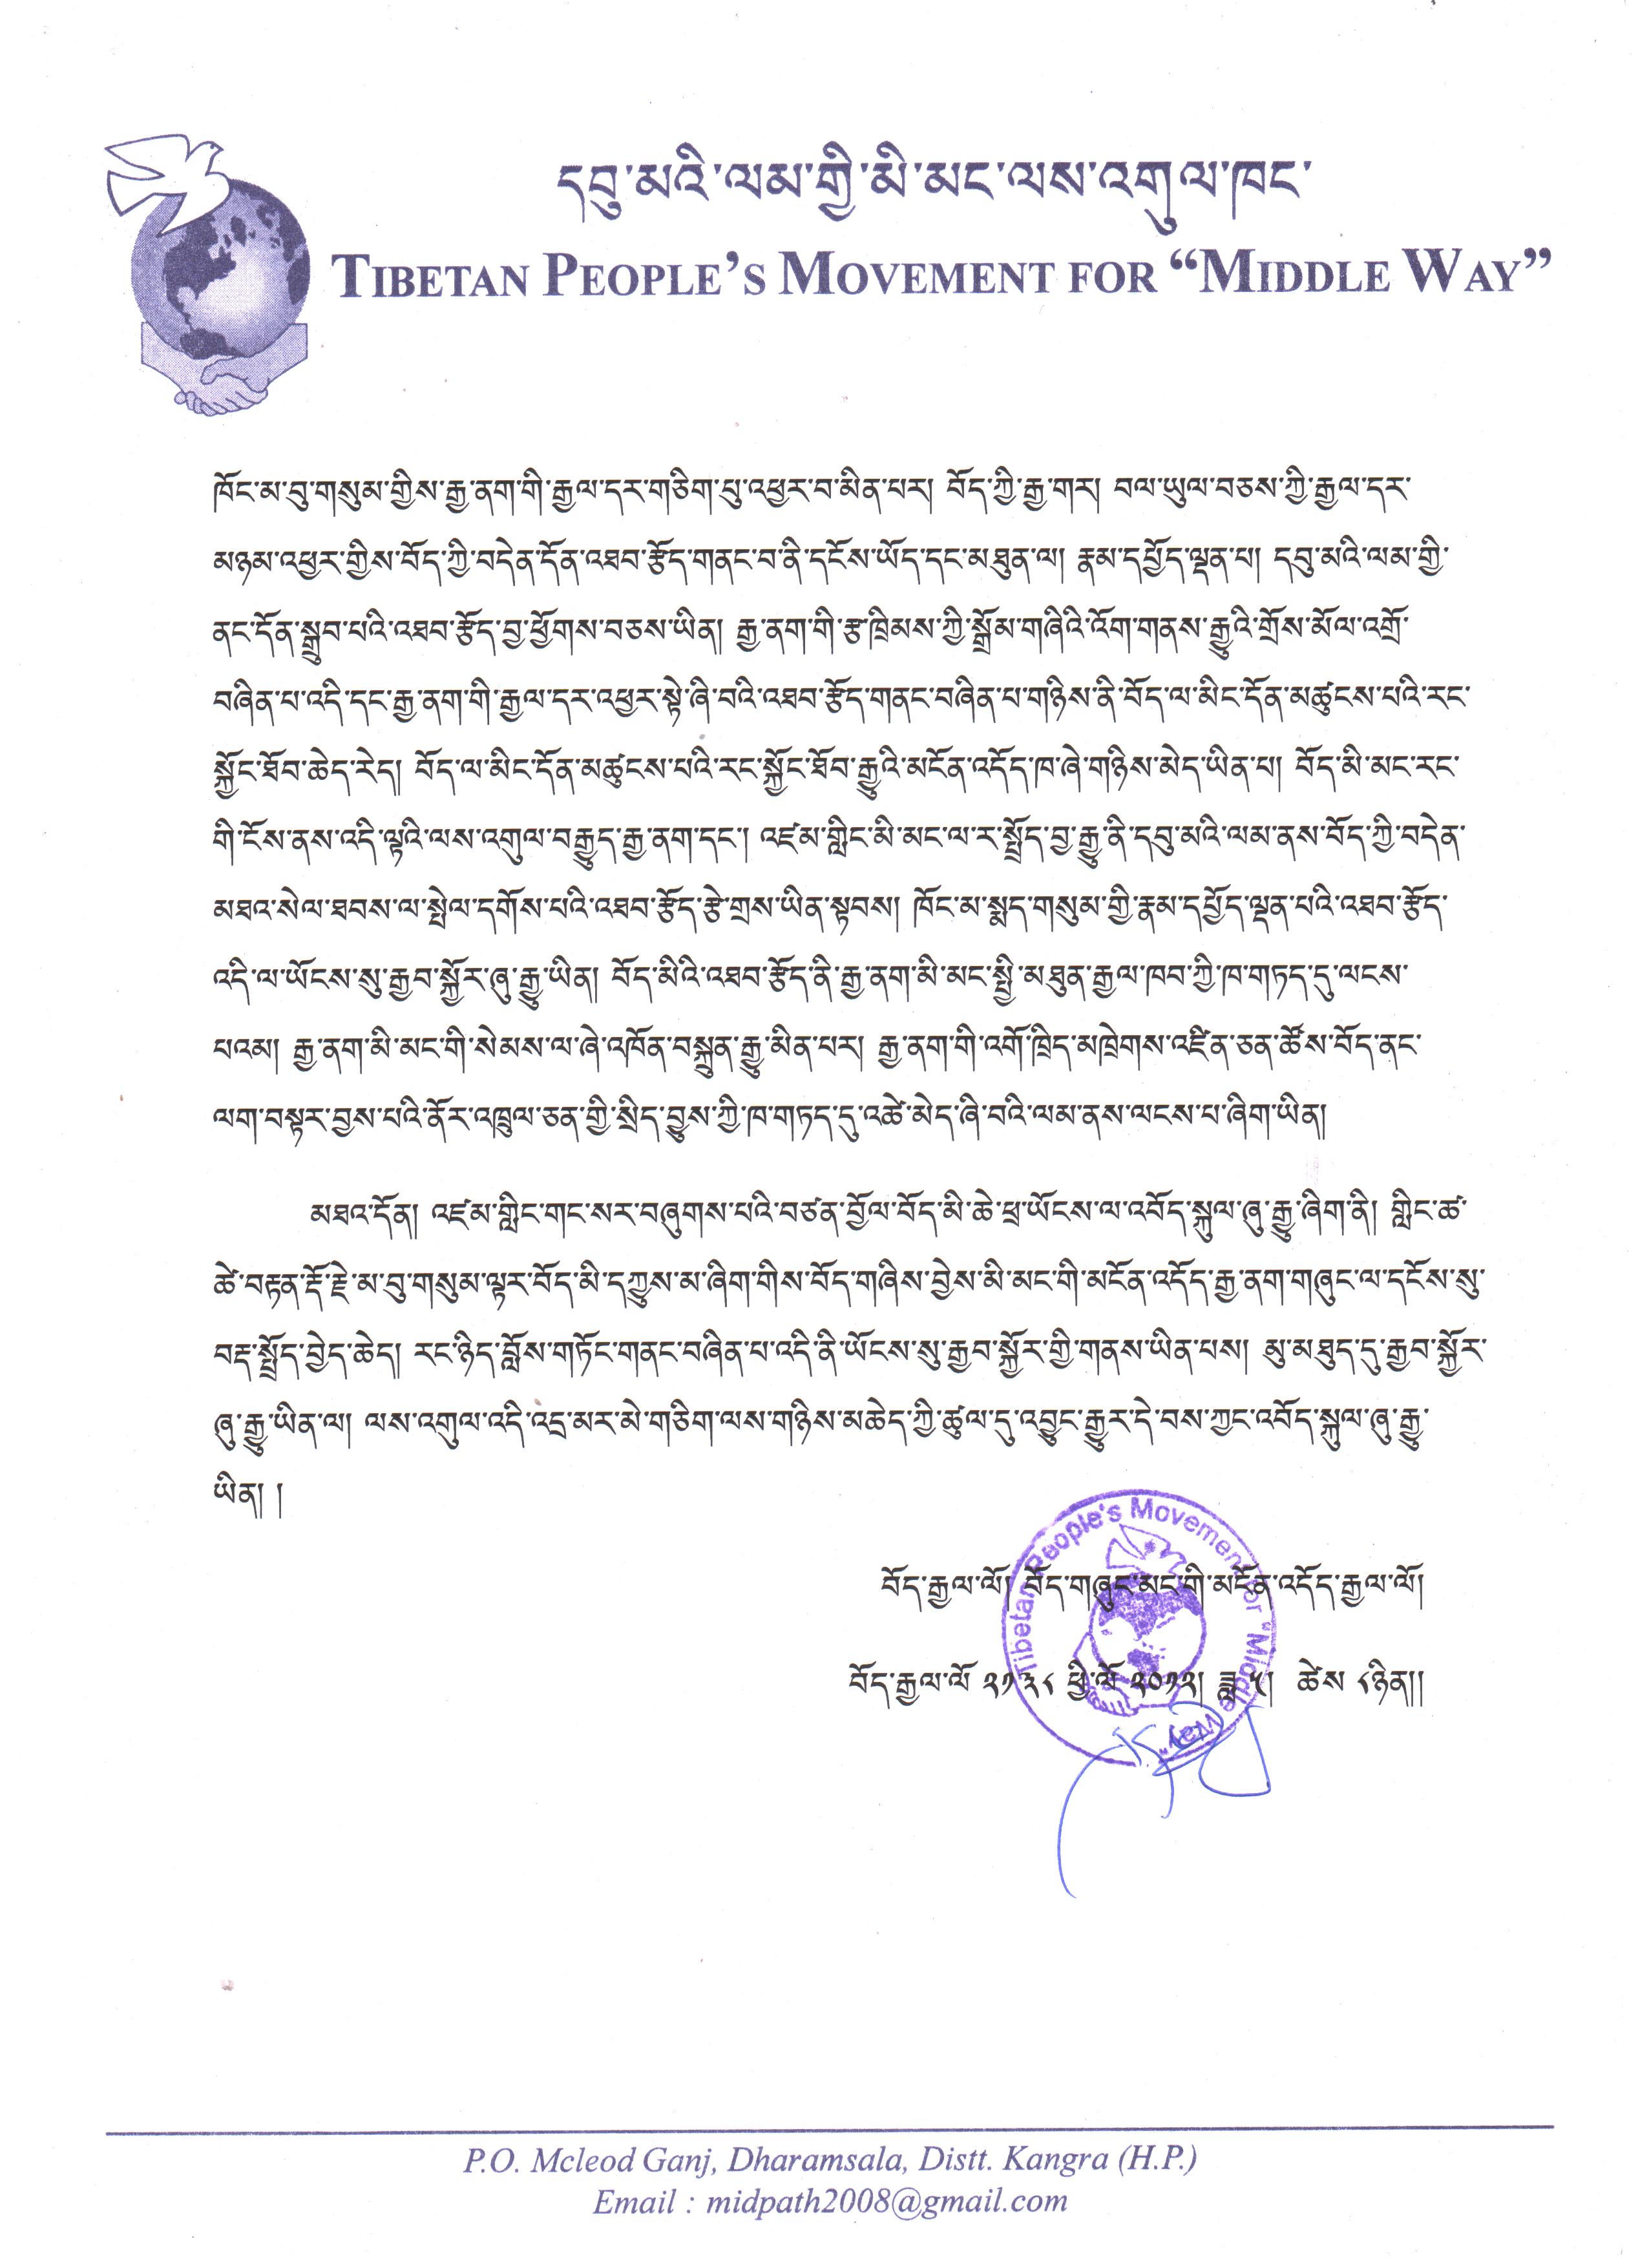 དབུ་མའི་ལམ་གྱི་མི་མང་ལས་འགུལ་ཁང་
TIBETAN PEOPLE'S MOVEMENT FOR “MIDDLE WAY”
ཁོང་མ་བུ་གསུམ་གྱིས་རྒྱ་ནག་གི་རྒྱལ་དར་གཅིག་པུ་འཕྱར་བ་མིན་པར། བོད་ཀྱི་རྒྱ་གར། བལ་ཡུལ་བཅས་ཀྱི་རྒྱལ་དར་
མཉམ་འཕྱར་གྱིས་བོད་ཀྱི་བདེན་དོན་འཐབ་རྩོད་གནང་བ་ནི་དངོས་ཡོད་དང་མཐུན་ལ། རྣམ་དཔྱོད་ལྡན་པ། དབུ་མའི་ལམ་གྱི་
ནང་དོན་སྒྲུབ་པའི་འཐབ་རྩོད་བྱ་ཕྱོགས་བཅས་ཡིན། རྒྱ་ནག་གི་རྩ་ཁྲིམས་ཀྱི་སྒྲོམ་གཞིའི་འོག་གནས་རྒྱུའི་གྲོས་མོལ་འགྲོ་
བཞིན་པ་འདི་དང་རྒྱ་ནག་གི་རྒྱལ་དར་འཕྱར་སྟེ་ཞི་བའི་འཐབ་རྩོད་གནང་བཞིན་པ་གཉིས་ནི་བོད་ལ་མིང་དོན་མཚུངས་པའི་རང་
སྐྱོང་ཐོབ་ཆེད་རེད། བོད་ལ་མིང་དོན་མཚུངས་པའི་རང་སྐྱོང་ཐོབ་རྒྱུའི་མངོན་འདོད་ཁ་ཞེ་གཉིས་མེད་ཡིན་པ། བོད་མི་མང་རང་
གི་ངོས་ནས་འདི་ལྟའི་ལས་འགུལ་བརྒྱུད་རྒྱ་ནག་དང་། འཛམ་གླིང་མི་མང་ལ་ར་སྤྲོད་བྱ་རྒྱུ་ནི་དབུ་མའི་ལམ་ནས་བོད་ཀྱི་བདེན་
མཐའ་སེལ་ཐབས་ལ་སྤེལ་དགོས་པའི་འཐབ་རྩོད་རྩེ་གྲས་ཡིན་སྟབས། ཁོང་མ་སྨད་གསུམ་གྱི་རྣམ་དཔྱོད་ལྡན་པའི་འཐབ་རྩོད་
འདི་ལ་ཡོངས་སུ་རྒྱབ་སྐྱོར་ཞུ་རྒྱུ་ཡིན། བོད་མིའི་འཐབ་རྩོད་ནི་རྒྱ་ནག་མི་མང་སྤྱི་མཐུན་རྒྱལ་ཁབ་ཀྱི་ཁ་གཏད་དུ་ལངས་
པའམ། རྒྱ་ནག་མི་མང་གི་སེམས་ལ་ཞེ་འཁོན་བསྐྲུན་རྒྱུ་མིན་པར། རྒྱ་ནག་གི་འགོ་ཁྲིད་མཁྲེགས་འཛིན་ཅན་ཚོས་བོད་ནང་
ལག་བསྟར་བྱས་པའི་ནོར་འཁྲུལ་ཅན་གྱི་སྲིད་བྱུས་ཀྱི་ཁ་གཏད་དུ་འཚེ་མེད་ཞི་བའི་ལམ་ནས་ལངས་པ་ཞིག་ཡིན།
མཐའ་དོན། འཛམ་གླིང་གང་སར་བཞུགས་པའི་བཙན་བྱོལ་བོད་མི་ཆེ་ཕྲ་ཡོངས་ལ་འབོད་སྐུལ་ཞུ་རྒྱུ་ཞིག་ནི། གླིང་ཚ་
ཚེ་བརྟན་རྡོ་རྗེ་མ་བུ་གསུམ་ལྟར་བོད་མི་དཀྱུས་མ་ཞིག་གིས་བོད་གཞིས་བྱེས་མི་མང་གི་མངོན་འདོད་རྒྱ་ནག་གཞུང་ལ་དངོས་སུ་
བརྡ་སྤྲོད་བྱེད་ཆེད། རང་ཉིད་བློས་གཏོང་གནང་བཞིན་པ་འདི་ནི་ཡོངས་སུ་རྒྱབ་སྐྱོར་གྱི་གནས་ཡིན་པས། མུ་མཐུད་དུ་རྒྱབ་སྐྱོར་
ཞུ་རྒྱུ་ཡིན་ལ། ལས་འགུལ་འདི་འདྲ་མར་མེ་གཅིག་ལས་གཉིས་མཆེད་ཀྱི་ཚུལ་དུ་འབྱུང་རྒྱུར་དེ་བས་ཀྱང་འབོད་སྐུལ་ཞུ་རྒྱུ་
ཡིན། །
Tibetan People's Movement for "Middle Way"
བོད་རྒྱལ་ལོ། བོད་གཞུང་མང་གི་མངོན་འདོད་རྒྱལ་ལོ།
བོད་རྒྱལ་ལོ ༢༡༣༨ ཕྱི་ལོ ༢༠༡༢། ཟླ ༥། ཚེས ༨ཉིན།།
P.O. Mcleod Ganj, Dharamsala, Distt. Kangra (H.P.)
Email : midpath2008@gmail.com